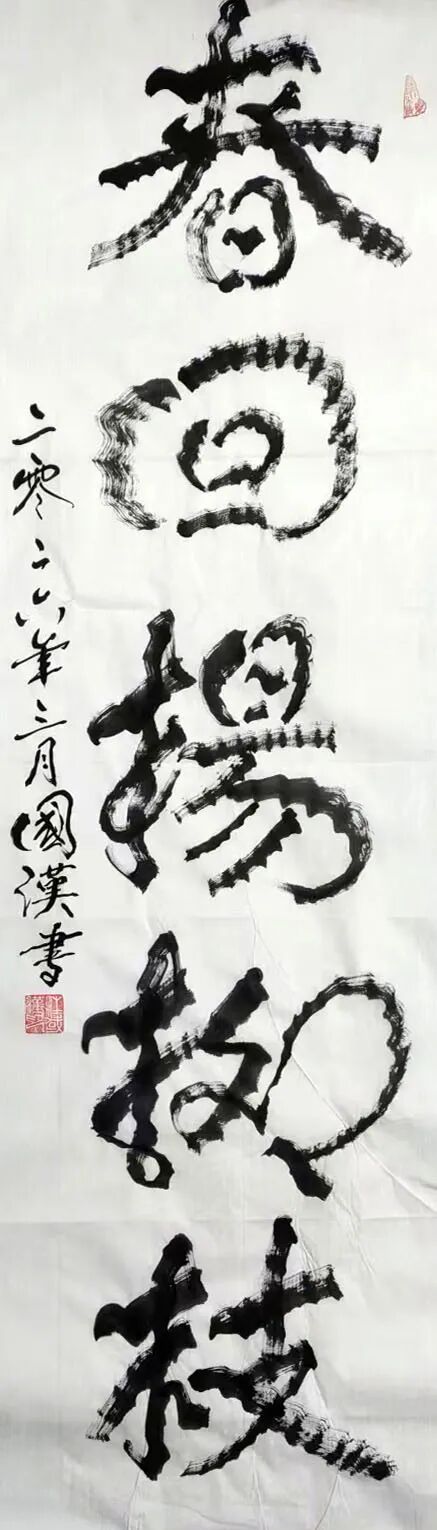 春回楊柳枝
二零二六年三月國漢書